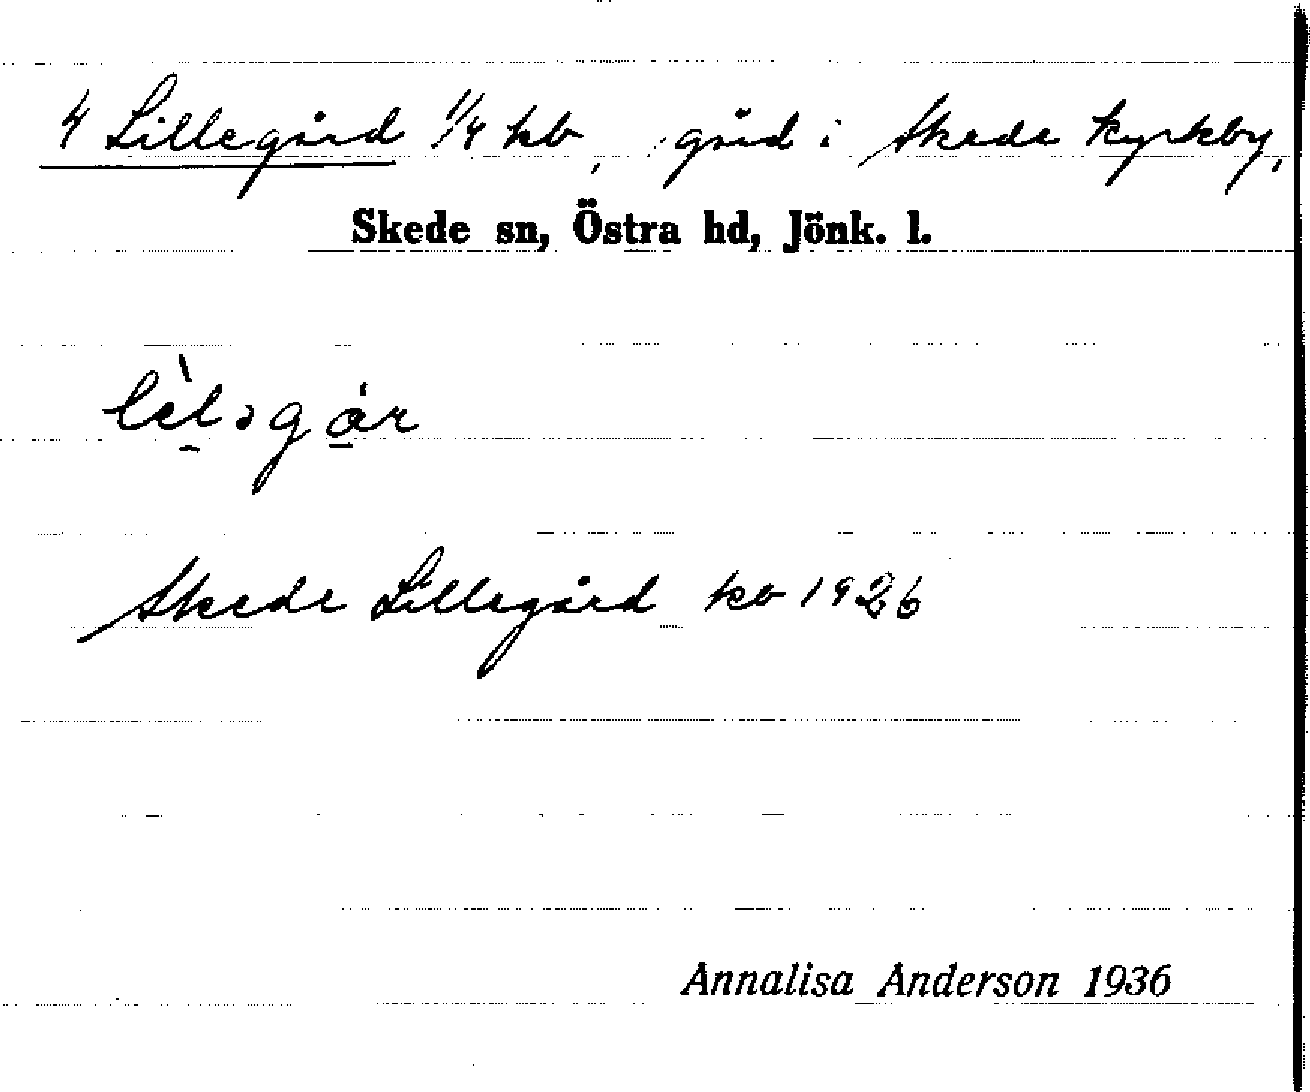 4 Lillegård 1/4 kb, gård i Skede kyrkby,
Skede sn, Östra hd, Jönk. l.
Skede Lillegård kb 1926
Annalisa Anderson 1936